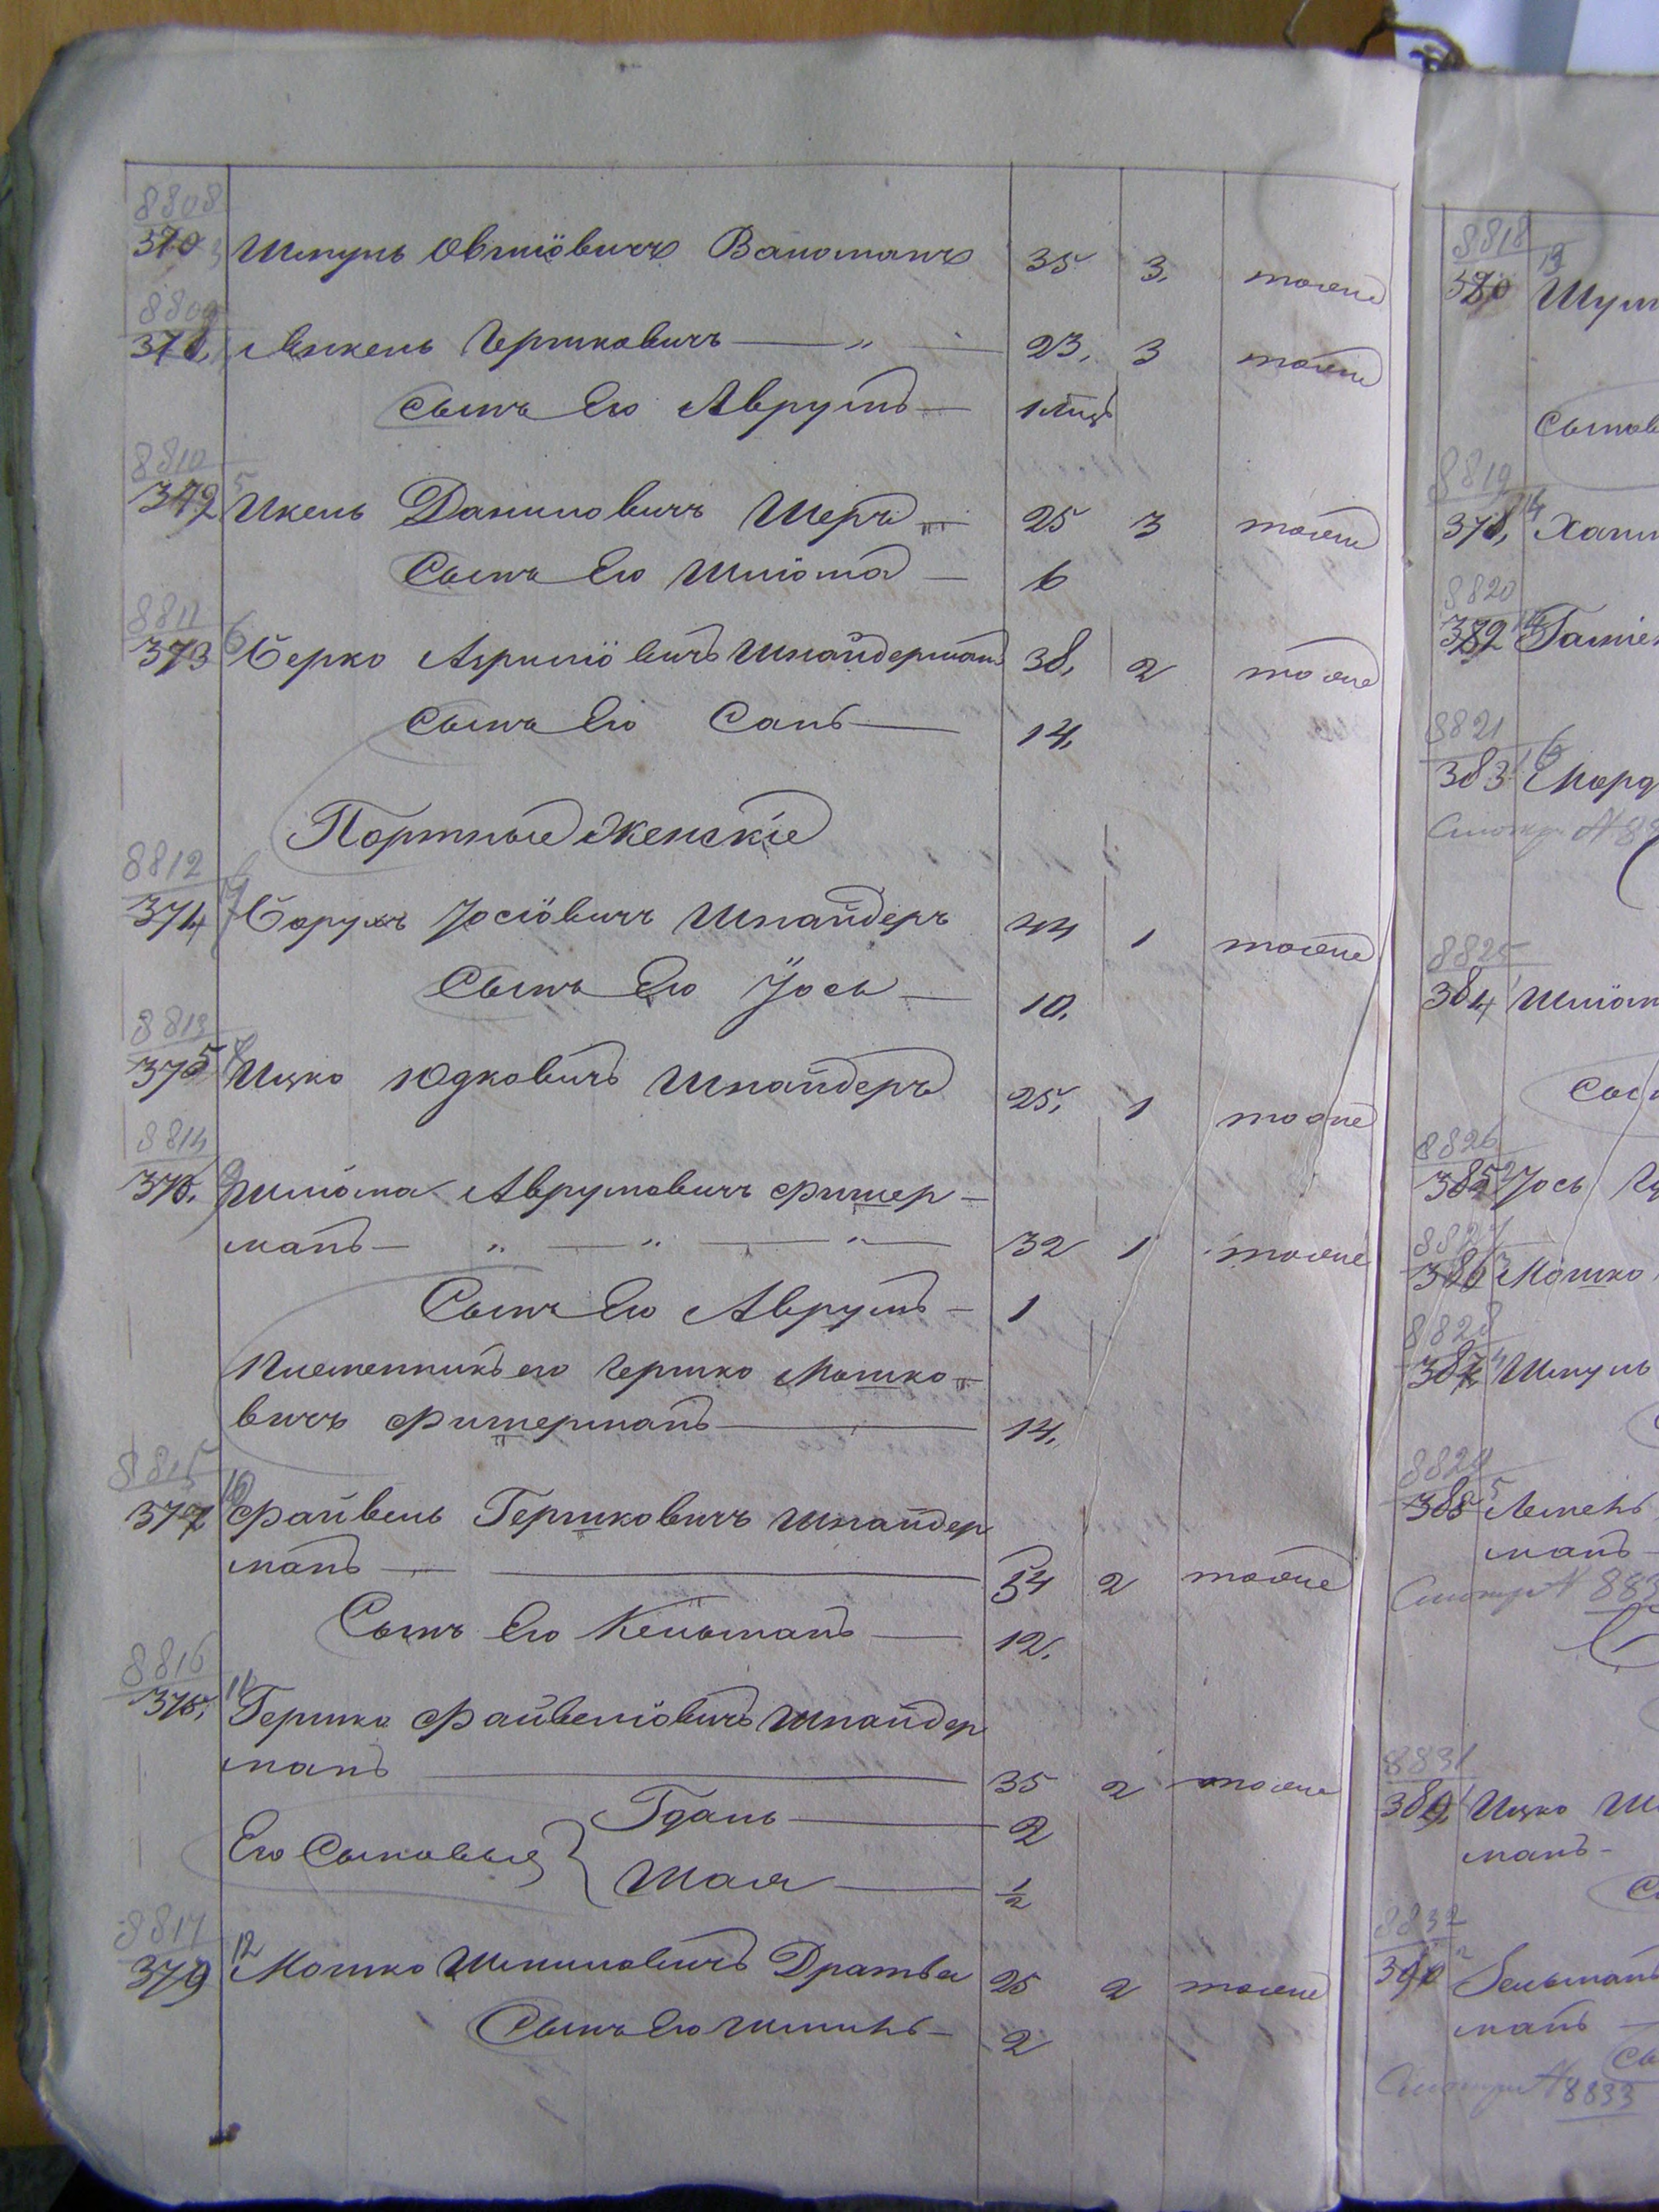 8808
370 Шмуль Овшiовичъ Вайсманъ 35 3. тоже
8809
371, Янкель Гершковичъ — „ — 23, 3 тоже
Сынъ Его Аврумъ — 1 мѣц
8810
372 5 Икель Даниловичъ Шеръ — 25 3 тоже
Сынъ Его Шліома — 6
8811
373 6 Берко Азриліовичъ Шнайдерманъ 38, 2 тоже
Сынъ Его Сапъ — 14,
Портные Женскіе
8812
374 7 Борухъ Іосіовичъ Шнайдеръ 44 1 тоже
Сынъ Его Іось — 10.
8813
375 8 Ицко Юдковичъ Шнайдеръ 25, 1 тоже
8814
376. 9 Шліома Аврумовичъ Фишер-
манъ — „ — „ — „ — 32 1 тоже
Сынъ Его Аврумъ — 1
Племенникъ его Гершко Мошко-
вичъ Фишерманъ — 14,
8815
377 10 Файвель Гершковичъ Шнайдер
манъ — 54 2 тоже
Сынъ Его Кельманъ — 12.
8816
378, 11 Гершко Файвеліовичъ Шнайдер
манъ — 35 2 тоже
Его Сыновья { Гдаль — 2
Шая — 1/2
8817
379 12 Мошко Шмиловичъ Дратва 25 2 тоже
Сынъ Его Шмиль — 2
8818
380 13
Сынов
8819
378, 14
8820
382
8821
383 16 Морд
8825
384 Шліом
8826
385 2 Іось
8827
386 3 Мошко
8828
387 4 Шмуль
8829
388 5
манъ —
Смотри № 883
8831
389, 1 Ицко
манъ —
8832
390 2
манъ —
Смотри № 8833